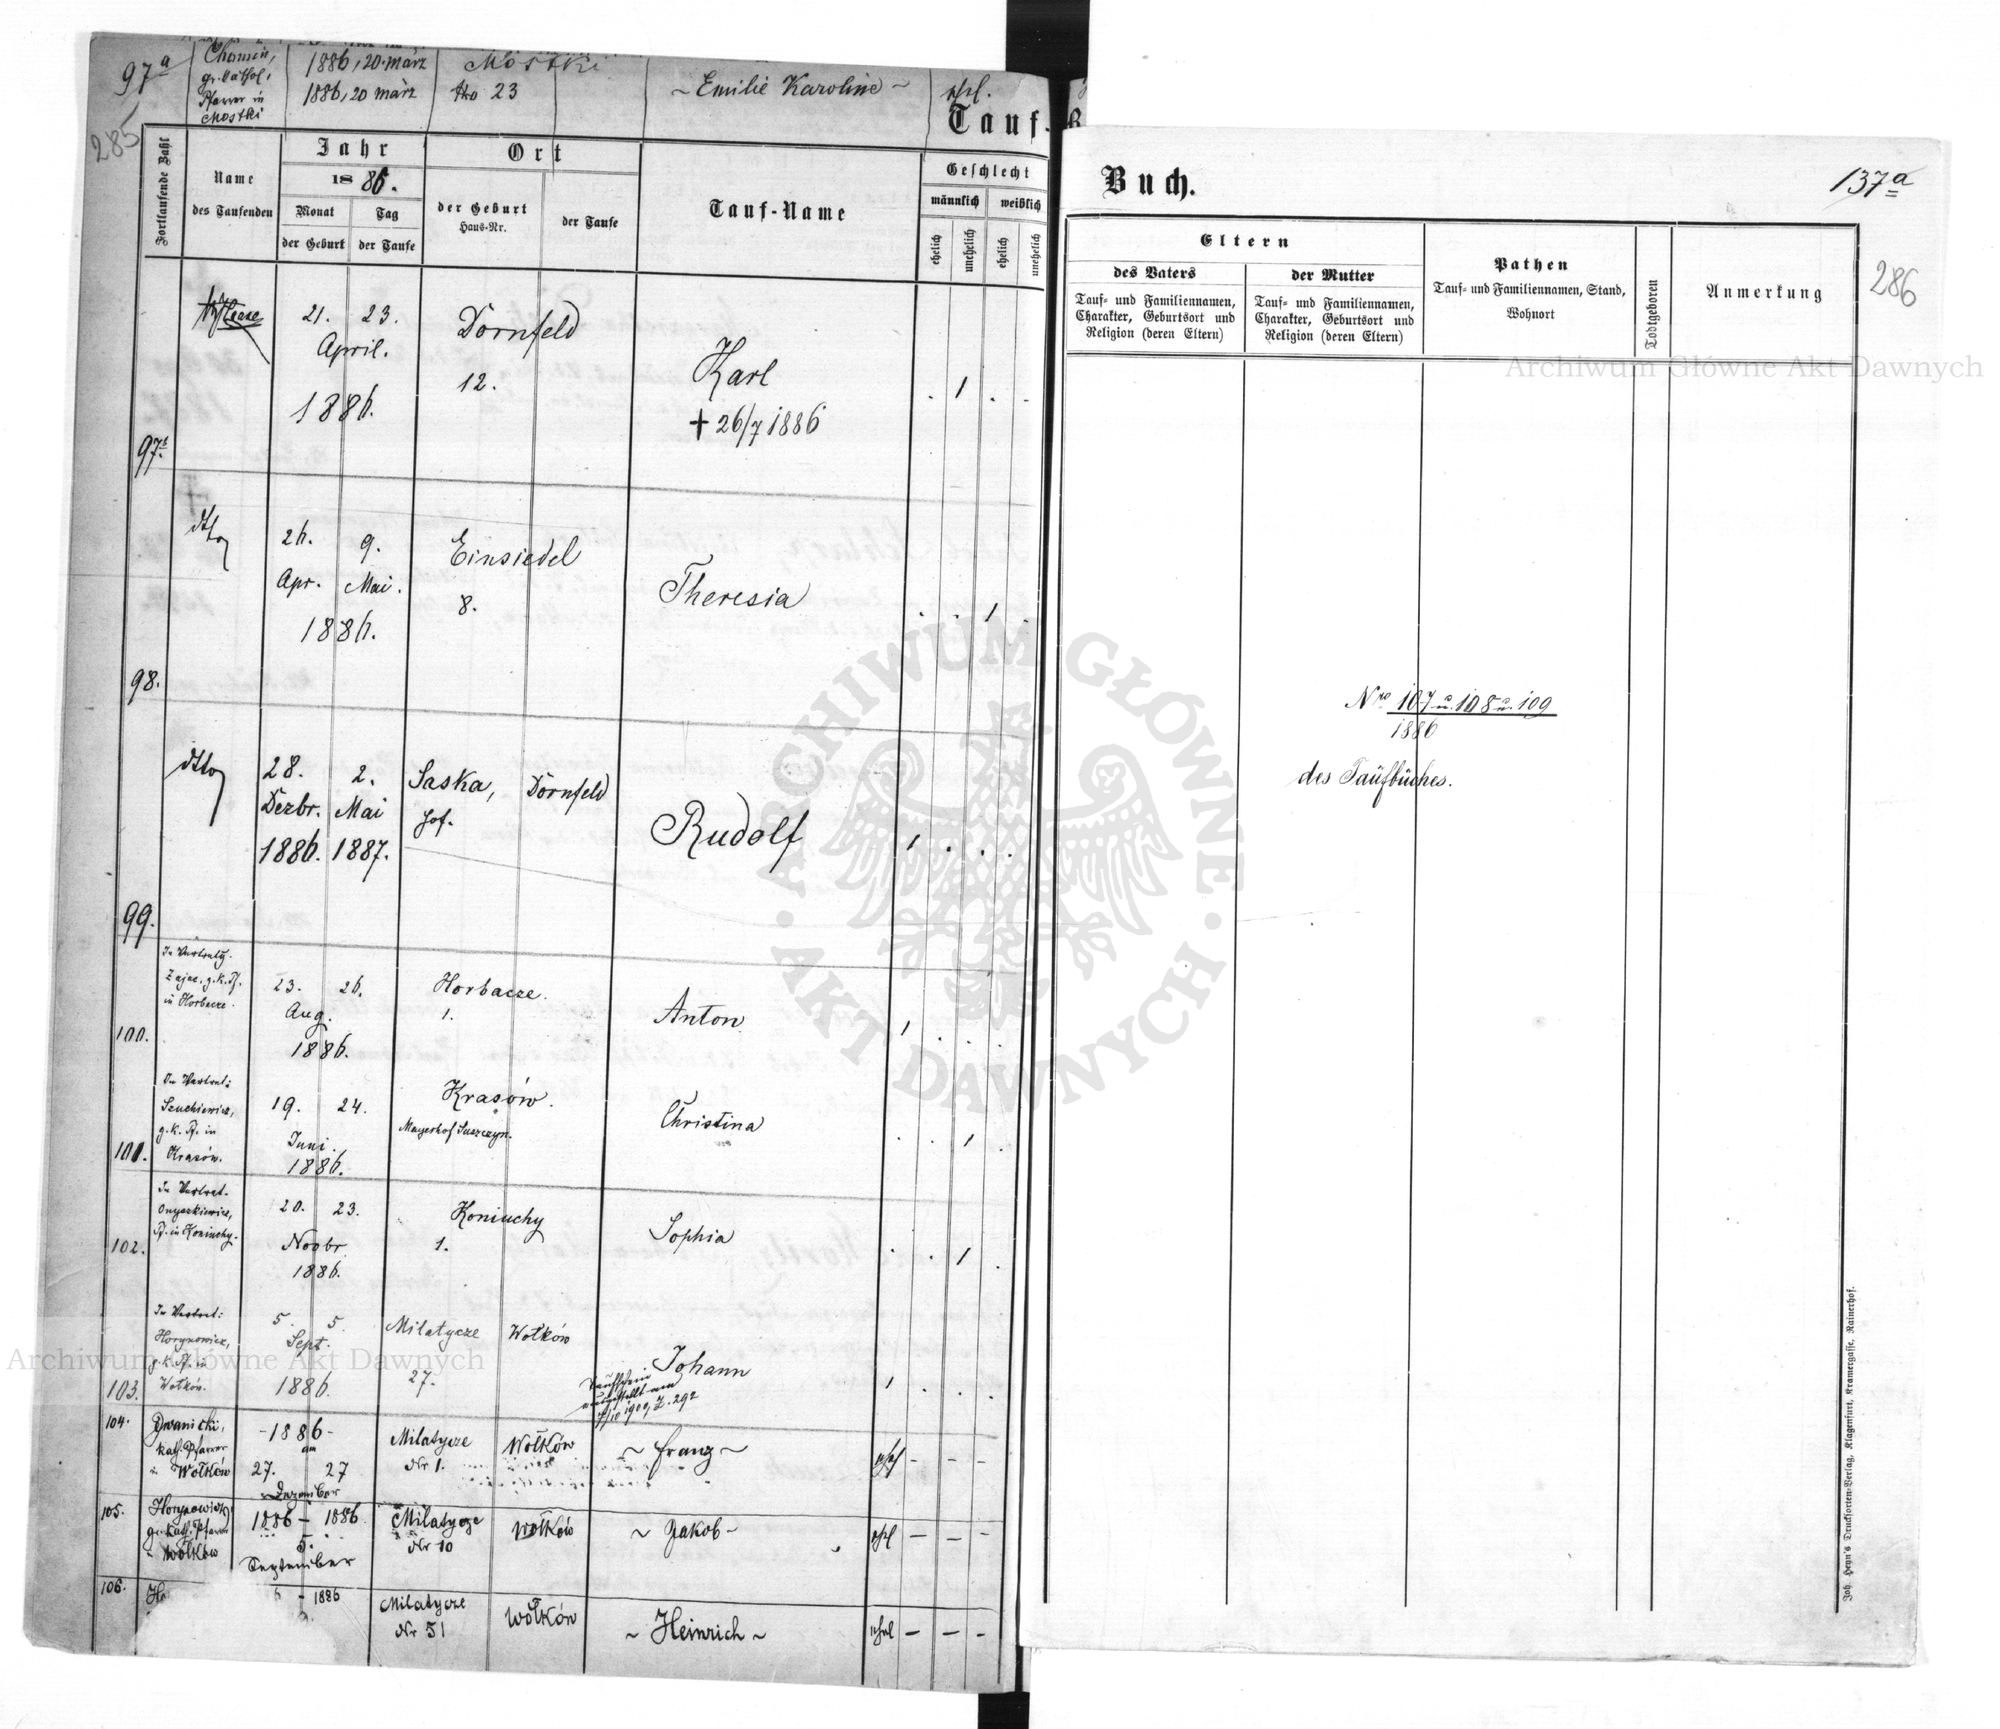 97a
Chomin,
gr. kathol.
Pfarrer in
Mostki
1886, 20. märz
1886, 20 märz
Mostki
No 23
~ Emilie Karoline ~
ehl.
285
Tauf-B
Fortlaufende Zahl
Name
des Taufenden
Jahr
1886.
Monat
der Geburt
Tag
der Taufe
Ort
der Geburt
Haus-Nr.
der Taufe
Tauf-Name
Geschlecht
männlich
weiblich
ehelich
unehelich
ehelich
unehelich
97b.
21. 23.
April.
1886.
Dornfeld
12.
Karl
+ 26/7 1886
. 1 . .
98.
dtto
26. 9.
Apr. Mai.
1886.
Einsiedel
8.
Theresia
. . 1 .
99.
dtto
28. 2.
Dezbr. Mai
1886. 1887.
Saska, Dornfeld
Hof.
Rudolf
1 . . .
100.
In Vertretg.
Zajac, g. k. Pf.
in Horbacze.
23. 26.
Aug.
1886.
Horbacze.
1.
Anton
1 . . .
101.
In Vertret:
Szuchiewicz,
g. k. Pf. in
Krasów.
19. 24.
Juni.
1886.
Krasów.
Mayerhof Suszczyn.
Christina
. . 1 .
102.
In Vertret.
Onyszkiewicz,
Pf. in Koniuchy.
20. 23.
Novbr.
1886.
Koniuchy
1.
Sophia
. . 1 .
103.
In Vertret:
Horynowicz,
g. k. Pf. in
Wołków.
5. 5.
Sept.
1886.
Milatycze
27.
Wołków
Johann
Taufschein
ausgestellt am
1909, Z. 292
1 . . .
104.
Iwanicki,
kath. Pfarrer
in Wołków
- 1886 -
am
27. 27
Dezember
Milatycze
Nr 1.
Wołków
~ Franz ~
ehel - - -
105.
Horynowicz
gr. kath. Pfarrer
in Wołków
1886 - 1886
5.
September
Milatycze
Nr 10
Wołków
~ Jakob ~
ehl - - -
106.
- 1886
Milatycze
Nr 51
Wołków
~ Heinrich ~
ehel - - -
Buch.
137a
286
Eltern
des Vaters
Tauf- und Familiennamen,
Charakter, Geburtsort und
Religion (deren Eltern)
der Mutter
Tauf- und Familiennamen,
Charakter, Geburtsort und
Religion (deren Eltern)
Pathen
Tauf- und Familiennamen, Stand,
Wohnort
Todtgeboren
Anmerkung
Nro 107 u. 108 u. 109
1886
des Taufbuches.
Joh. Heyn's Drucksorten-Verlag, Klagenfurt, Kramergasse, Rainerhof.
Archiwum Główne Akt Dawnych
Archiwum Główne Akt Dawnych
ARCHIWUM GŁÓWNE · AKT DAWNYCH ·